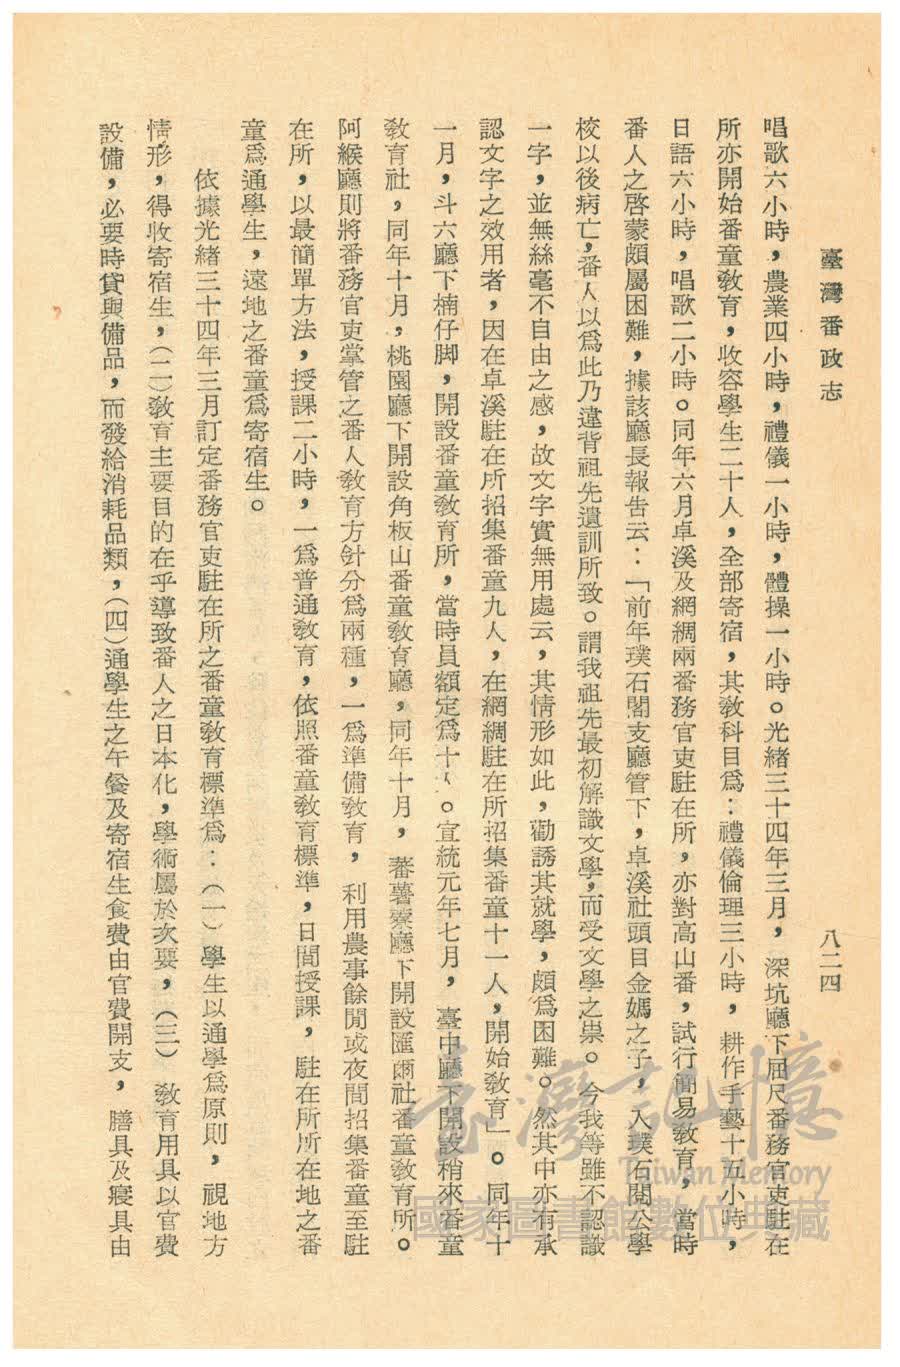 臺灣番政志
八二四
唱歌六小時，農業四小時，禮儀一小時，體操一小時。光緒三十四年三月，深坑廳下屈尺番務官吏駐在
所亦開始番童敎育，收容學生二十人，全部寄宿，其敎科目爲：禮儀倫理三小時，耕作手藝十五小時，
日語六小時，唱歌二小時。同年六月卓溪及網綢兩番務官吏駐在所，亦對高山番，試行簡易敎育，當時
番人之啓蒙頗屬困難，據該廳長報告云：「前年璞石閣支廳管下，卓溪社頭目金媽之子，入璞石閣公學
校以後病亡，番人以爲此乃違背祖先遺訓所致。謂我祖先最初解識文學，而受文學之祟。今我等雖不認識
一字，並無絲毫不自由之感，故文字實無用處云，其情形如此，勸誘其就學，頗爲困難。然其中亦有承
認文字之效用者，因在卓溪駐在所招集番童九人，在網綢駐在所招集番童十一人，開始敎育」。同年十
一月，斗六廳下楠仔脚，開設番童敎育所，當時員額定爲十人。宣統元年七月，臺中廳下開設稍來番童
敎育社，同年十月，桃園廳下開設角板山番童敎育廳，同年十月，蕃薯寮廳下開設匯爾社番童敎育所。
阿緱廳則將番務官吏掌管之番人敎育方針分爲兩種，一爲準備敎育，利用農事餘閒或夜間招集番童至駐
在所，以最簡單方法，授課二小時，一爲普通敎育，依照番童敎育標準，日間授課，駐在所所在地之番
童爲通學生，遠地之番童爲寄宿生。
依據光緒三十四年三月訂定番務官吏駐在所之番童敎育標準爲：（一）學生以通學爲原則，視地方
情形，得收寄宿生，（二）敎育主要目的在乎導致番人之日本化，學術屬於次要，（三）敎育用具以官費
設備，必要時貸與備品，而發給消耗品類，（四）通學生之午餐及寄宿生食費由官費開支，膳具及寢具由
臺灣記憶
Taiwan Memory
國家圖書館數位典藏